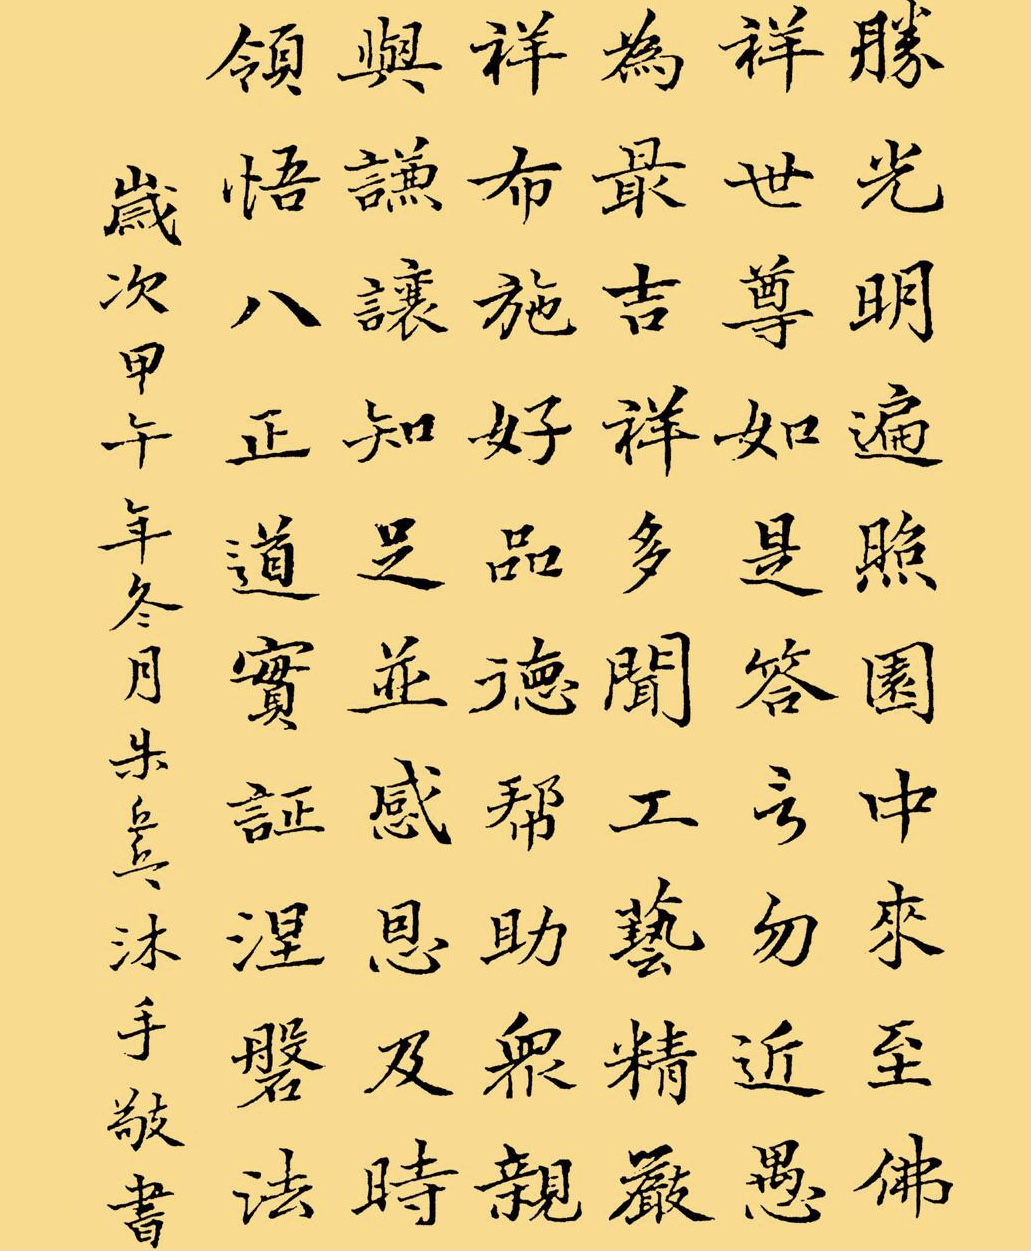 勝光明遍照園中來至佛
祥世尊如是答言勿近愚
為最吉祥多聞工藝精嚴
祥布施好品德帮助眾親
與謙讓知足並感恩及時
領悟八正道實証涅磐法
歲次甲午年冬月朱兵兵沐手敬書